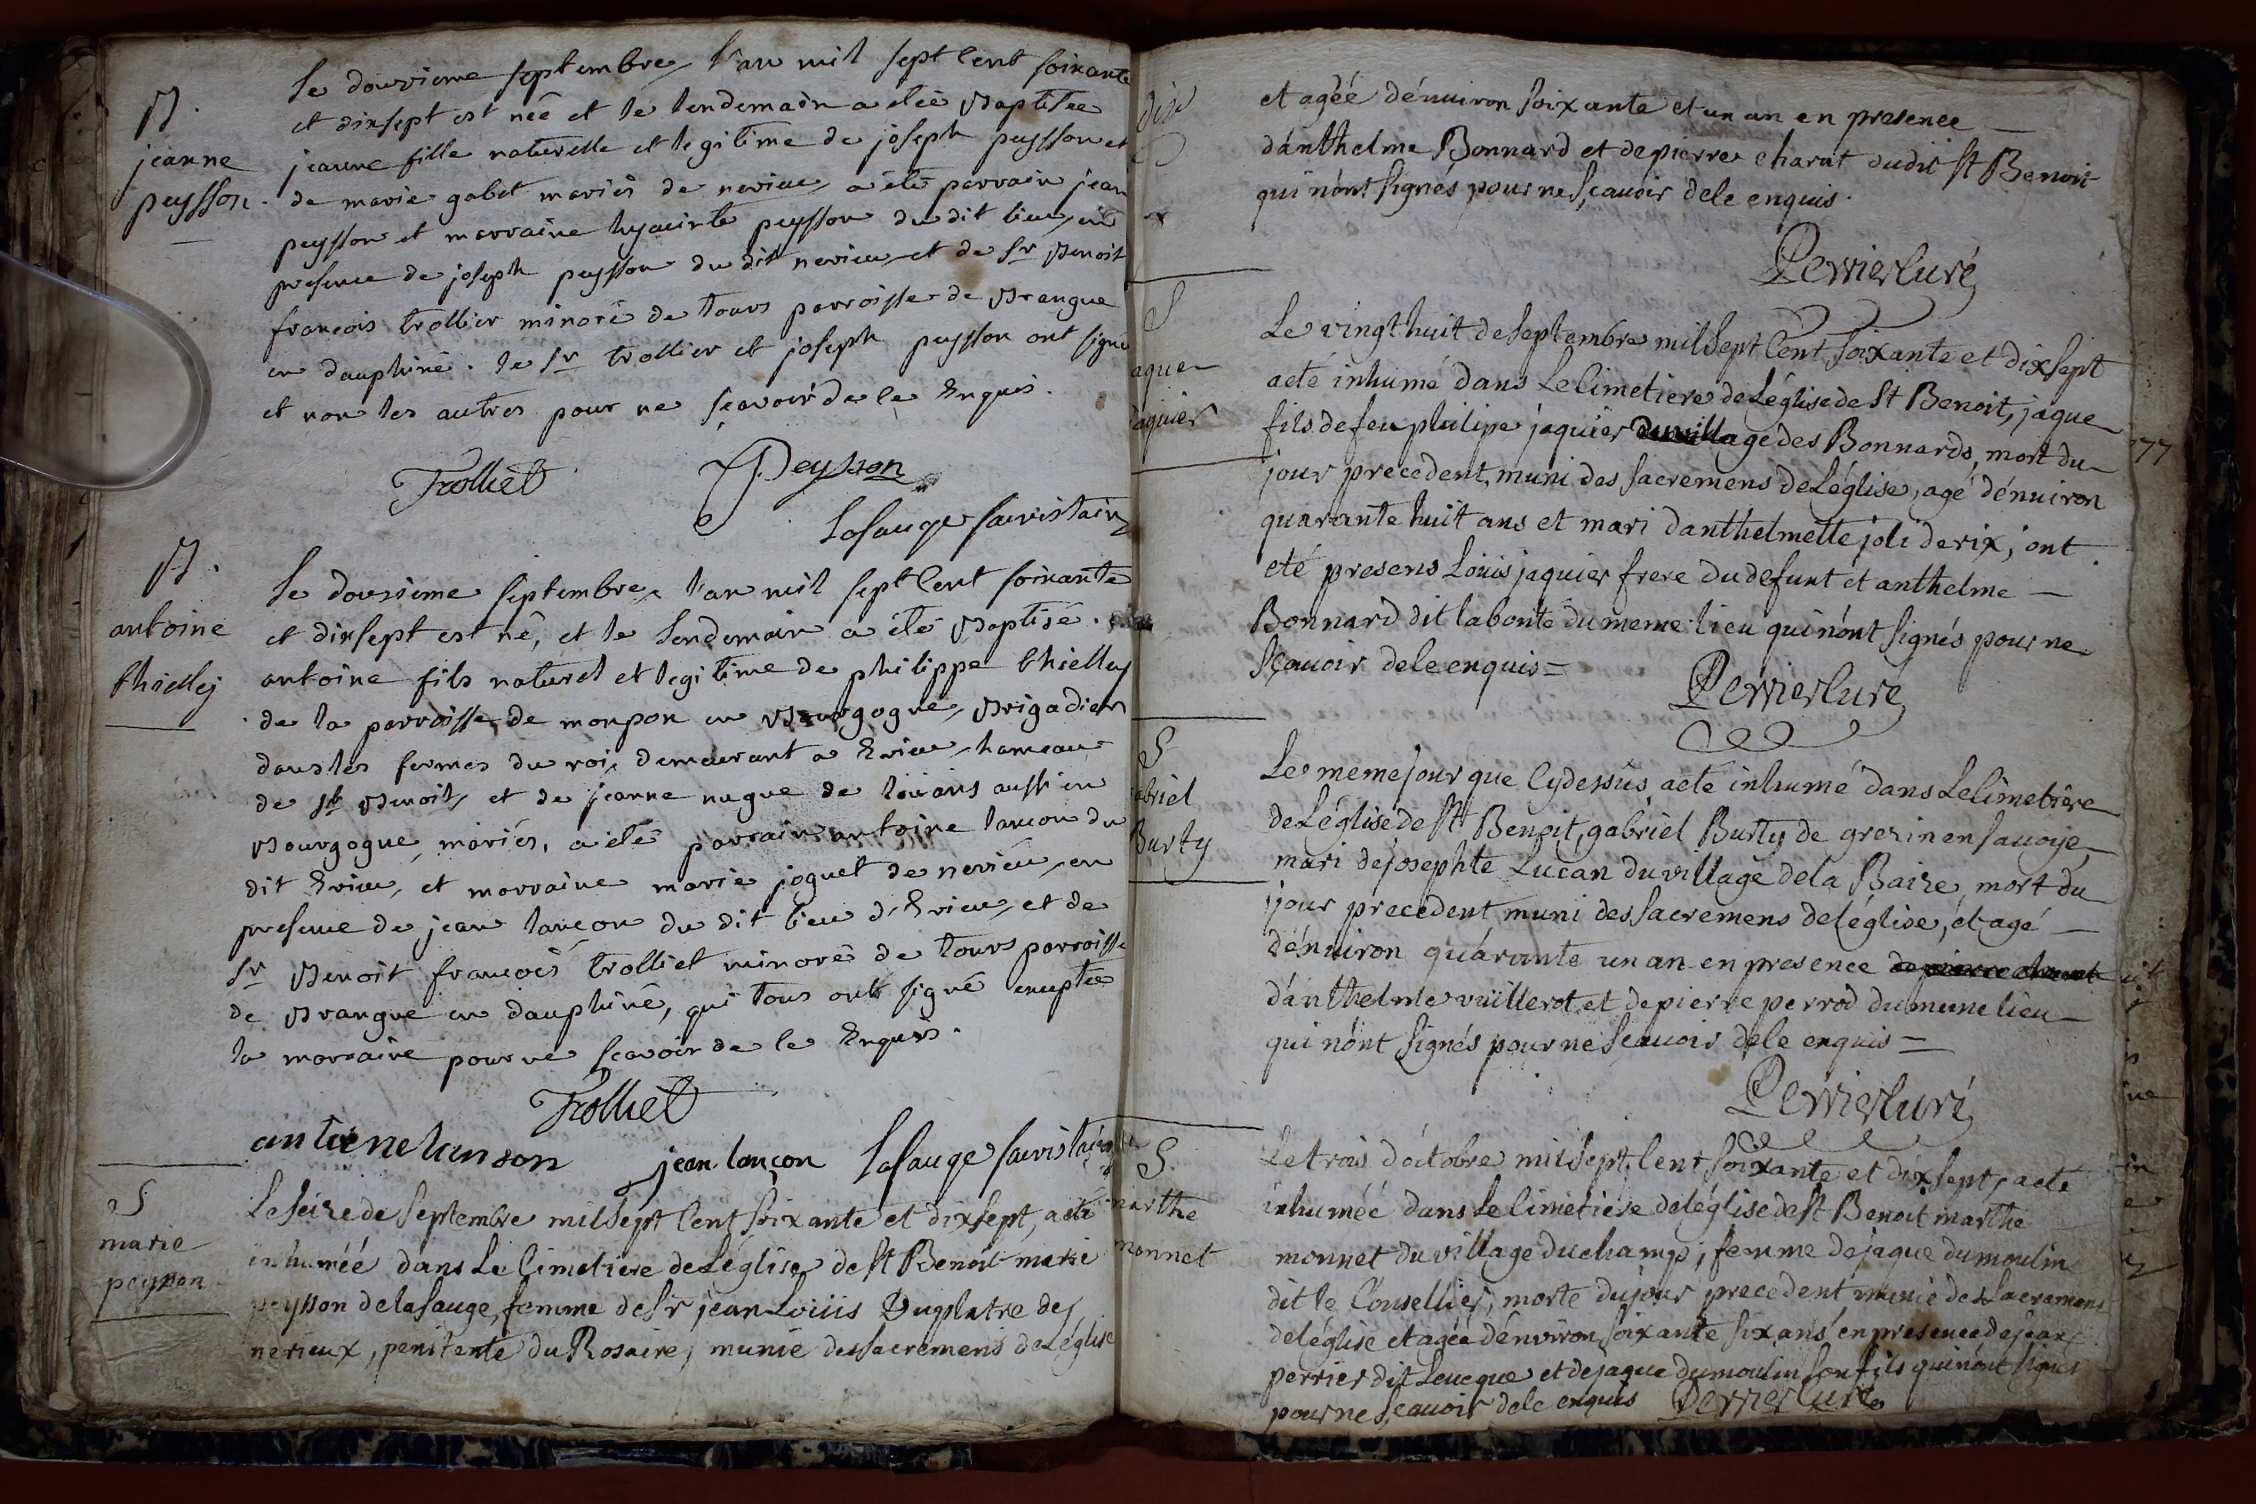 B.
jeanne
peysson.
Le douzieme septembre l'an mil sept cent soixante
et dixsept est née et le lendemain a etée Baptisée
jeanne fille naturelle et legitime de joseph peysson et
de marie gabet mariés de nerieu, a été parrain jean
peysson et marraine hyacinte peysson du dit lieu, en
presence de joseph peysson du dit nerieu et de Sr Benoit
francois trollier minoré de tours parroisse de Brangue
en dauphiné. le Sr trollier et joseph peysson ont signé
et non les autres pour ne sçavoir de le Enquis.
Trolliet
JPeysson
Lasauge sacristain
B.
antoine
thielley
Le douzieme septembre, l'an mil sept cent soixante
et dixsept est né, et le lendemain a été Baptisé.
antoine fils naturel et legitime de philippe thielley
de la parroisse de monpon en Bourgogne, Brigadier
dans les fermes du roi, demeurant a Evieu, hameau
de St Benoit, et de jeanne nugue de louans aussi en
Bourgogne, mariés, a été parrain antoine lancon du
dit Evieu, et marraine marie joguet de nerieu, en
presence de jean lancon du dit lieu d'Evieu, et de
Sr Benoit françois trolliet minoré de tours parroisse
de Brangue en dauphiné, qui tous ont signé exceptée
la marraine pour ne sçavoir de le Enquis.
Trolliet
antoine lanson
jean lançon
Lasauge sacristain
S
marie
peysson
Le seize de Septembre mil Sept Cent Soixante et dixsept, a eté
inhuméé dans Le Cimetiere de Léglise de St Benoit marie
peysson de lasauge, femme de Sr jean Loüis Dugplatre de
nerieux, penitente du Rosaire, munie des sacremens de Léglise
et agéé dénuiron soixante et un an en presence
dánthelme Bonnard et de pierre charat dudit St Benoit
qui nónt signés pour ne sçauoir de le enquis.
Perrier Curé
S
aque
aquier
Le vingt huit de septembre mil Sept Cent Soixante et dixsept
a eté inhumé dans Le Cimetiere de Léglise de St Benoit, jaque
fils de feu philipe jaquier du village des Bonnards, mort du
jour precedent, muni des sacremens de Léglise, agé dénuiron
quarante huit ans et mari danthelmette joli de rix, ont
eté presens Loüis jaquier frere du defunt et anthelme
Bonnard dit labonté du meme lieu qui nónt signés pour ne
Sçauoir de le enquis =
Perrier Curé
S
abriel
Burty
Le meme jour que Cy dessus a eté inhumé dans Le Cimetiere
de Léglise de St Benoit, gabriel Burty de grezin en sauoye,
mari de josephte Lucan du village de la Baize, mort du
jour precedent, muni des sacremens de léglise, et agé
dénuiron quárante un an en presence
dánthelme vüillerot et de pierre perrod du meme lieu
qui nónt signés pour ne Scauoir de le enquis =
Perrier Curé
S.
marthe
monnet
Le trois dóctobre mil Sept Cent Soixante et dixsept, a eté
inhuméé dans Le Cimetiere de léglise de St Benoit marthe
monnet du village du champ, femme de jaque dumoulin
dit le Consellier, morte du jour precedent munie des Sacremens
de léglise et agéé dénviron soixante six ans en presence de jean
perrier dit Leueque et de jaque dumoulin son fils qui nónt signés
pour ne Scauoir de le enquis
Perrier Curé
177